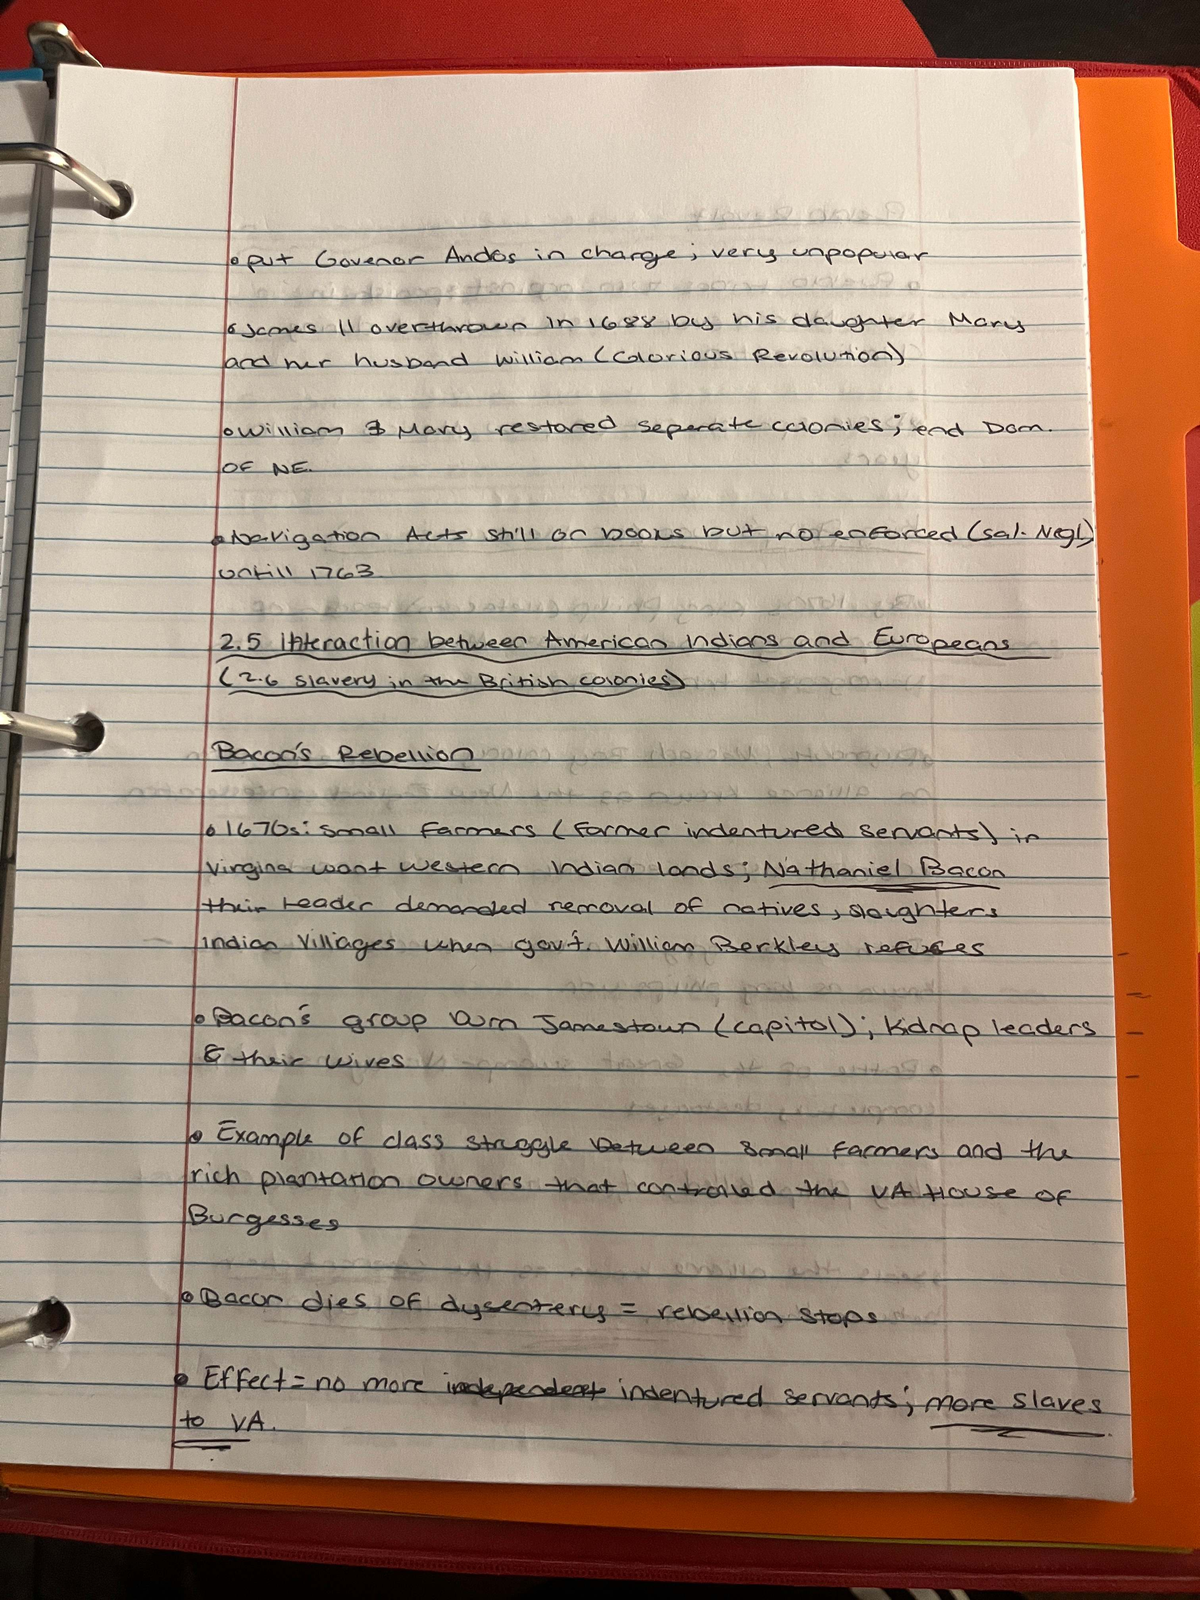 • put Govenor Andos in charge; very unpopular
• James II overthrown in 1688 by his daughter Mary
and her husband William (Glorious Revolution)
• William & Mary restored seperate colonies; end Dom.
OF NE.
• Navigation Acts still on books but no enforced (sal. Negl)
untill 1763.
2.5 Interaction between American Indians and Europeans
(2.6 slavery in the British colonies)
Bacon's Rebellion
• 1670s: small farmers (former indentured servants) in
Virgina want western Indian lands; Nathaniel Bacon
their leader demanded removal of natives, slaughters
indian villages when gov't. William Berkley refuses
• Bacon's group burn Jamestown (capitol); kidnap leaders
& their wives
• Example of class struggle between small farmers and the
rich plantation owners that controlled the VA House of
Burgesses
• Bacon dies of dysentery = rebellion stops
• Effect = no more independent indentured servants; more slaves
to VA.